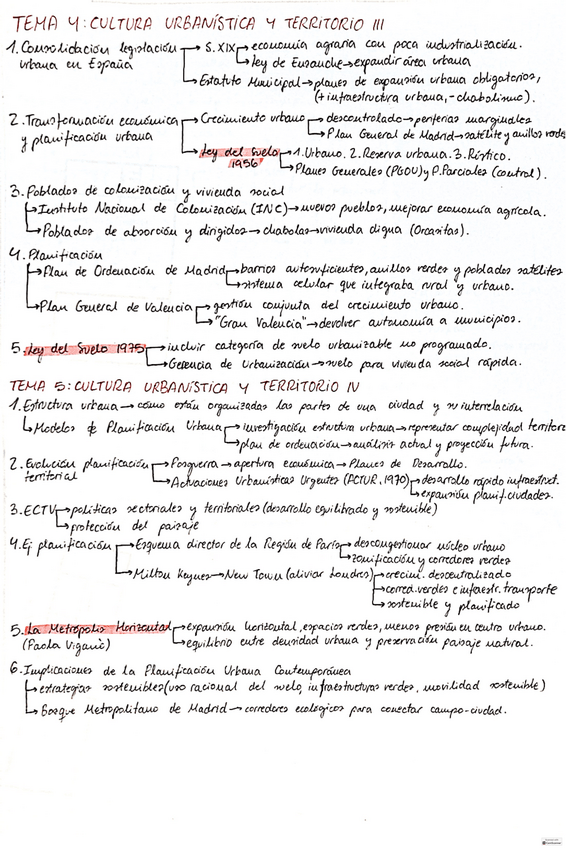 TEMA 4: CULTURA URBANÍSTICA Y TERRITORIO III
1. Consolidación legislación → S. XIX → economía agraria con poca industrialización.
urbana en España → Ley de Ensanche → expandir área urbana
→ Estatuto Municipal → planes de expansión urbana obligatorios,
(+ infraestructura urbana, - chabolismo).
2. Transformación económica → Crecimiento urbano → descontrolado → periferias marginales
y planificación urbana → Plan General de Madrid → satélite y anillos verdes
→ Ley del Suelo → 1. Urbano. 2. Reserva urbana. 3. Rústico.
1956 → Planes Generales (PGOU) y P. Parciales (control).
3. Poblados de colonización y vivienda social
→ Instituto Nacional de Colonización (INC) → nuevos pueblos, mejorar economía agrícola.
→ Poblados de absorción y dirigidos → chabolas → vivienda digna (Orcasitas).
4. Planificación
→ Plan de Ordenación de Madrid → barrios autosuficientes, anillos verdes y poblados satélites
→ sistema celular que integraba rural y urbano.
→ Plan General de Valencia → gestión conjunta del crecimiento urbano.
→ "Gran Valencia" → devolver autonomía a municipios.
5. Ley del Suelo 1975 → incluir categoría de suelo urbanizable no programado.
→ Gerencia de Urbanización → suelo para vivienda social rápida.
TEMA 5: CULTURA URBANÍSTICA Y TERRITORIO IV
1. Estructura urbana → cómo están organizadas las partes de una ciudad y su interrelación
→ Modelos de Planificación Urbana → investigación estructura urbana → representar complejidad territorio
→ plan de ordenación → análisis actual y proyección futura.
2. Evolución planificación → Posguerra → apertura económica → Planes de Desarrollo.
territorial → Actuaciones Urbanísticas Urgentes (ACTUR, 1970) → desarrollo rápido infraestruct.
→ expansión planif. ciudades.
3. ECTV → políticas sectoriales y territoriales (desarrollo equilibrado y sostenible)
→ protección del paisaje
4. Ej planificación → Esquema director de la Región de París → descongestionar núcleo urbano
→ zonificación y corredores verdes
→ Milton Keynes → New Town (aliviar Londres) → crecim. descentralizado
→ corred. verdes e infraestr. transporte
→ sostenible y planificado
5. La Metrópolis Horizontal → expansión horizontal, espacios verdes, menos presión en centro urbano.
(Paola Viganò) → equilibrio entre densidad urbana y preservación paisaje natural.
6. Implicaciones de la Planificación Urbana Contemporánea
→ estrategias sostenibles (uso racional del suelo, infraestructuras verdes, movilidad sostenible)
→ Bosque Metropolitano de Madrid → corredores ecológicos para conectar campo-ciudad.